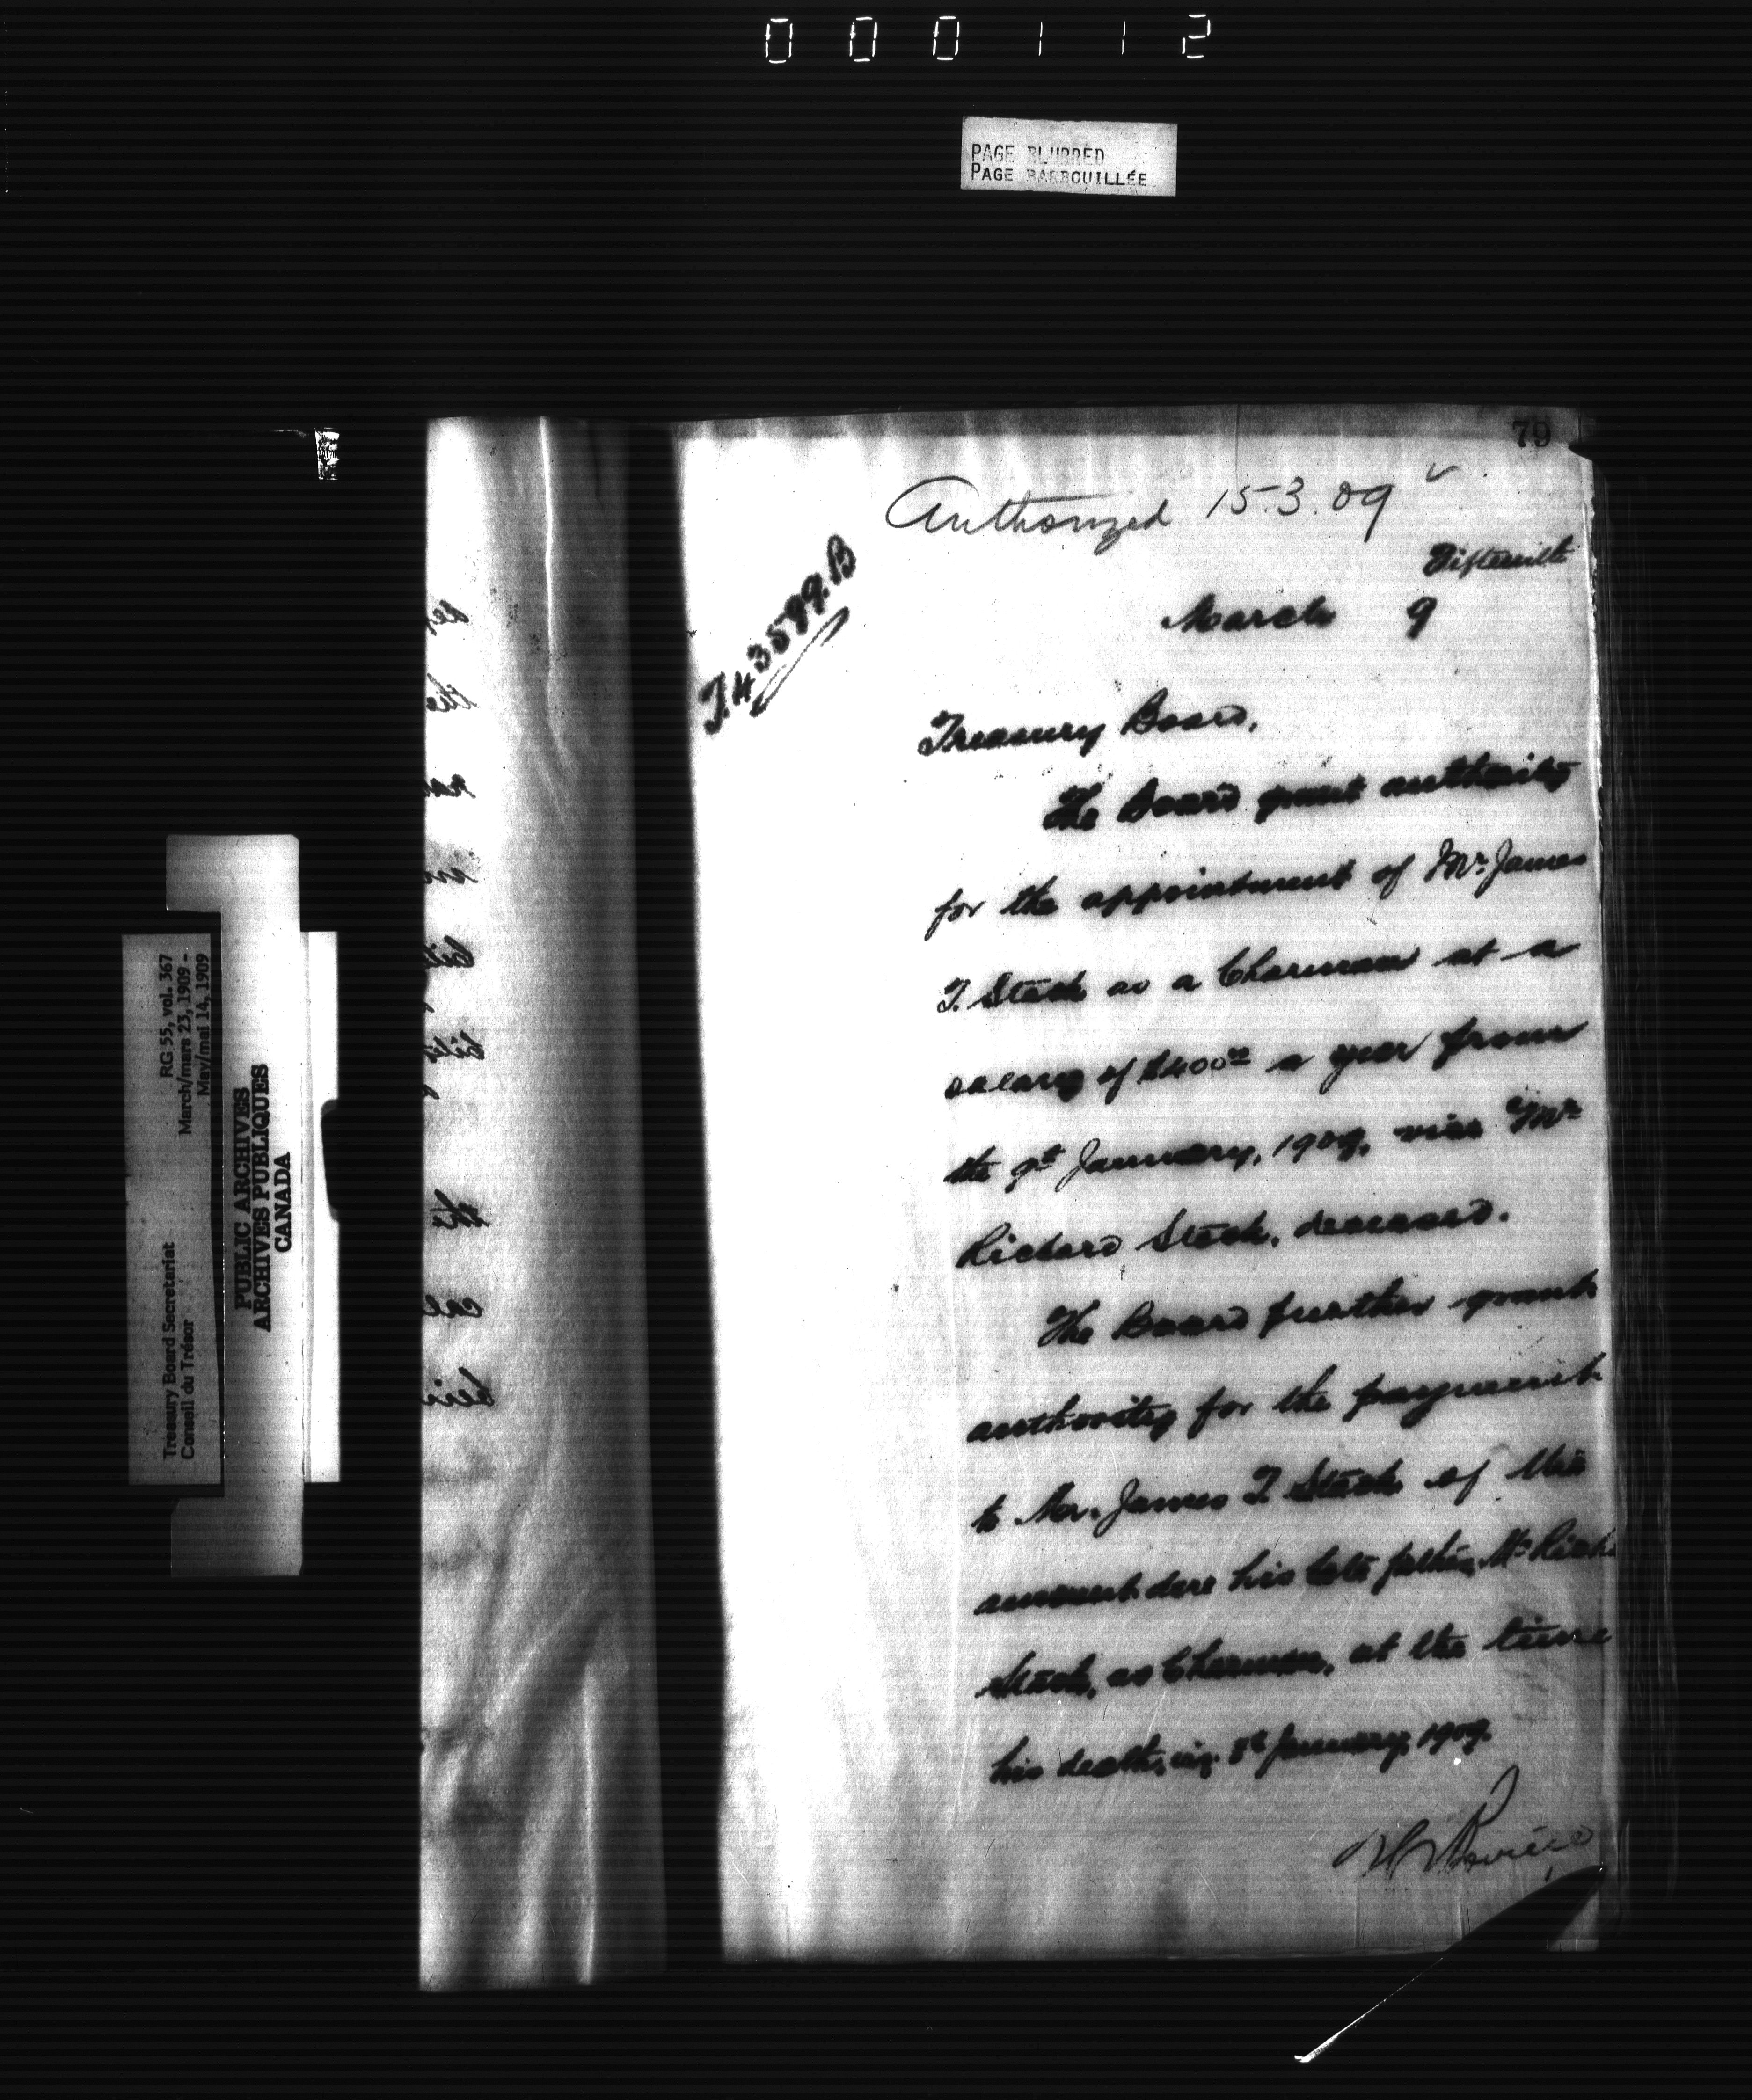 000112
PAGE BLURRED
PAGE BARBOUILLÉE
79
Authorized 15.3.09
T.43599.B
Fifteenth
March 9
Treasury Board,
The Board grant authority
for the appointment of Mr. James
T. Stack as a Charman at a
salary of $400.00 a year from
the 9th January, 1909, vice Mr
Richard Stack, deceased.
The Board further grant
authority for the payment
to Mr. James T. Stack of the
amount due his late father, Mr Richd
Stack, as Charman, at the time
his death, viz. 8th January, 1909.
RG 55, vol. 367
March/mars 23, 1909 –
May/mai 14, 1909
Treasury Board Secretariat
Conseil du Trésor
PUBLIC ARCHIVES
ARCHIVES PUBLIQUES
CANADA